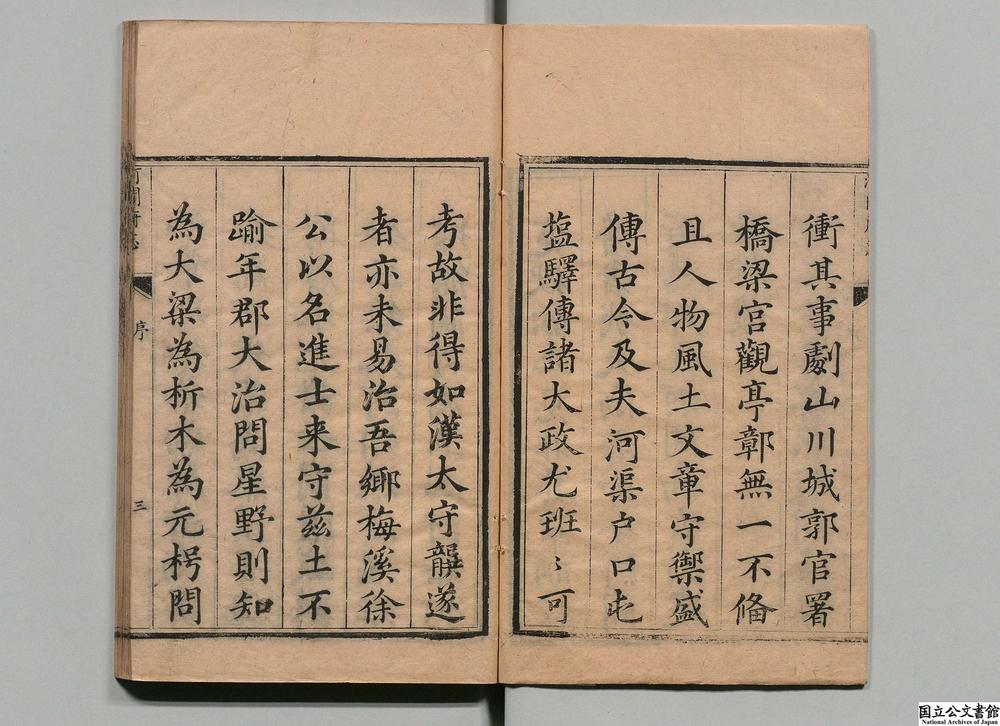 衝其事劇山川城郭官署
橋梁宮觀亭鄣無一不俻
且人物風土文章守禦盛
傳古今及夫河渠户口屯
塩驛傳諸大政尤班〻可
考故非得如漢太守龔遂
者亦未易治吾鄉梅溪徐
公以名進士来守兹土不
踰年郡大治問星野則知
為大梁為析木為元枵問
河間府志
序
三
国立公文書館
National Archives of Japan